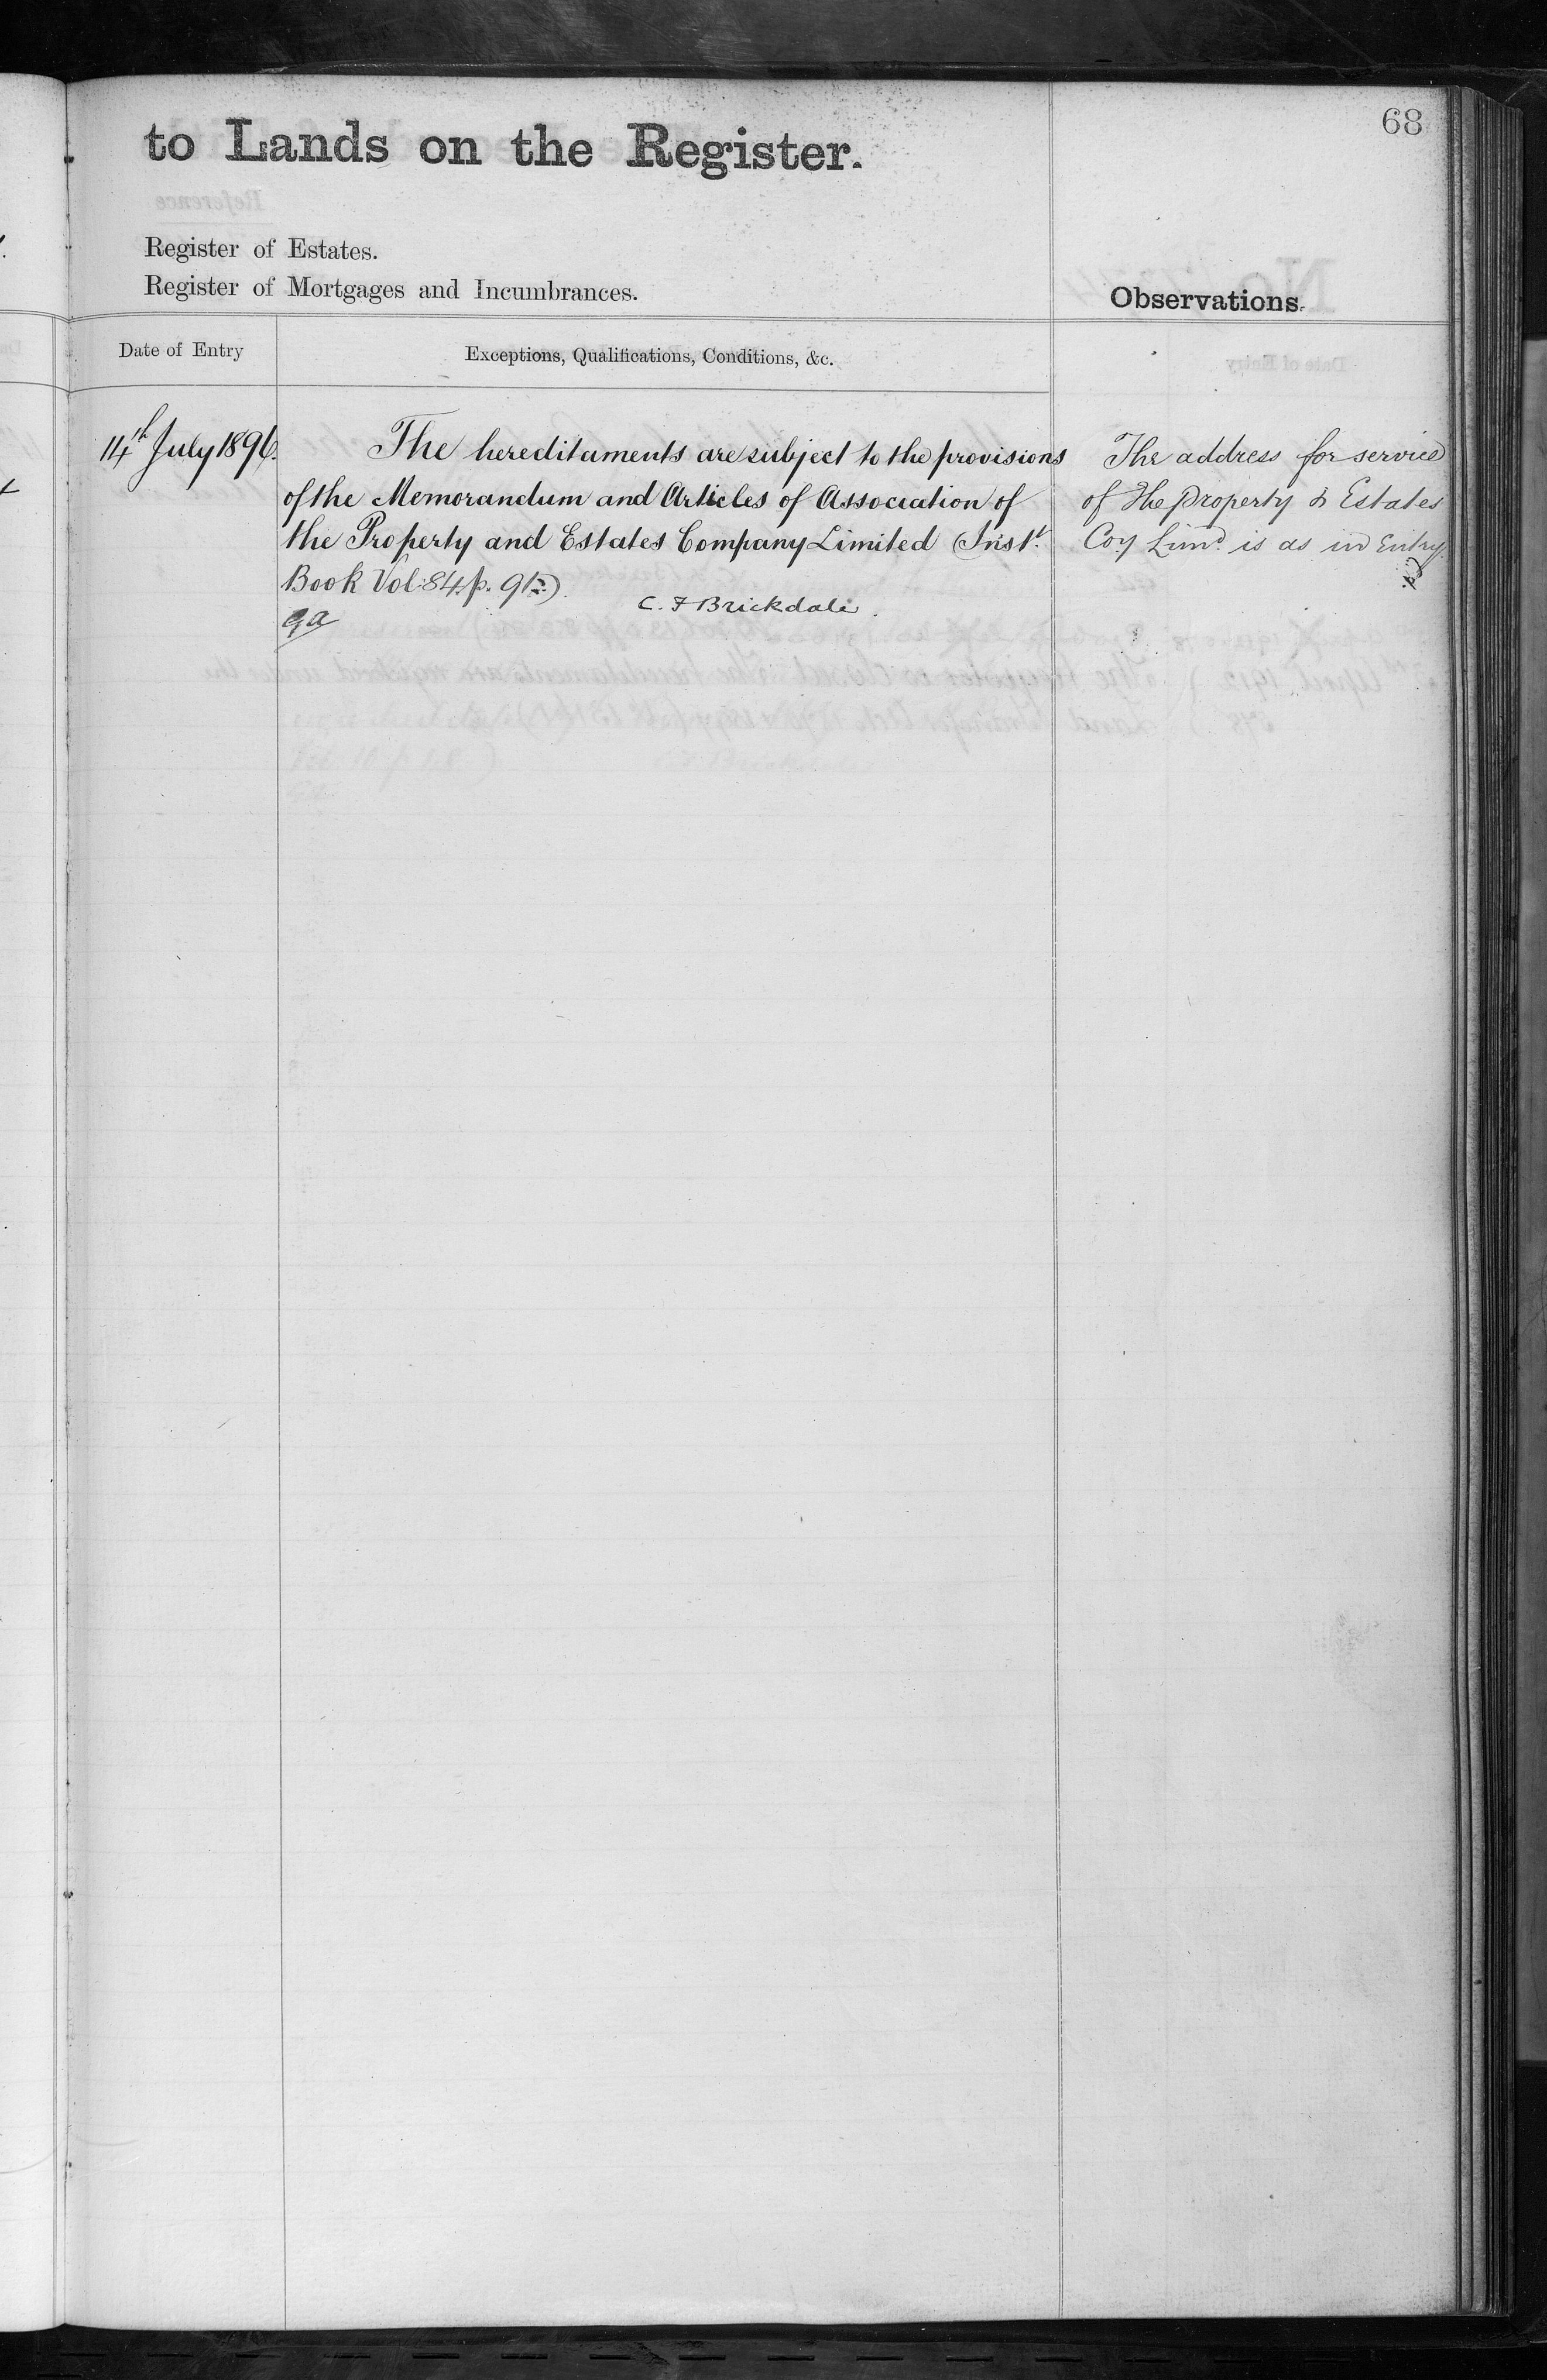 68
to Lands on the Register.
Register of Estates.
Register of Mortgages and Incumbrances.
Observations.
Date of Entry
Exceptions, Qualifications, Conditions, &c.
14th July 1896.
The hereditaments are subject to the provisions
of the Memorandum and Articles of Association of
the Property and Estates Company Limited (Inst.
Book Vol: 84 p. 91
C. F Brickdale.
The address for service
of the Property & Estates
Coy Limd. is as in Entry.